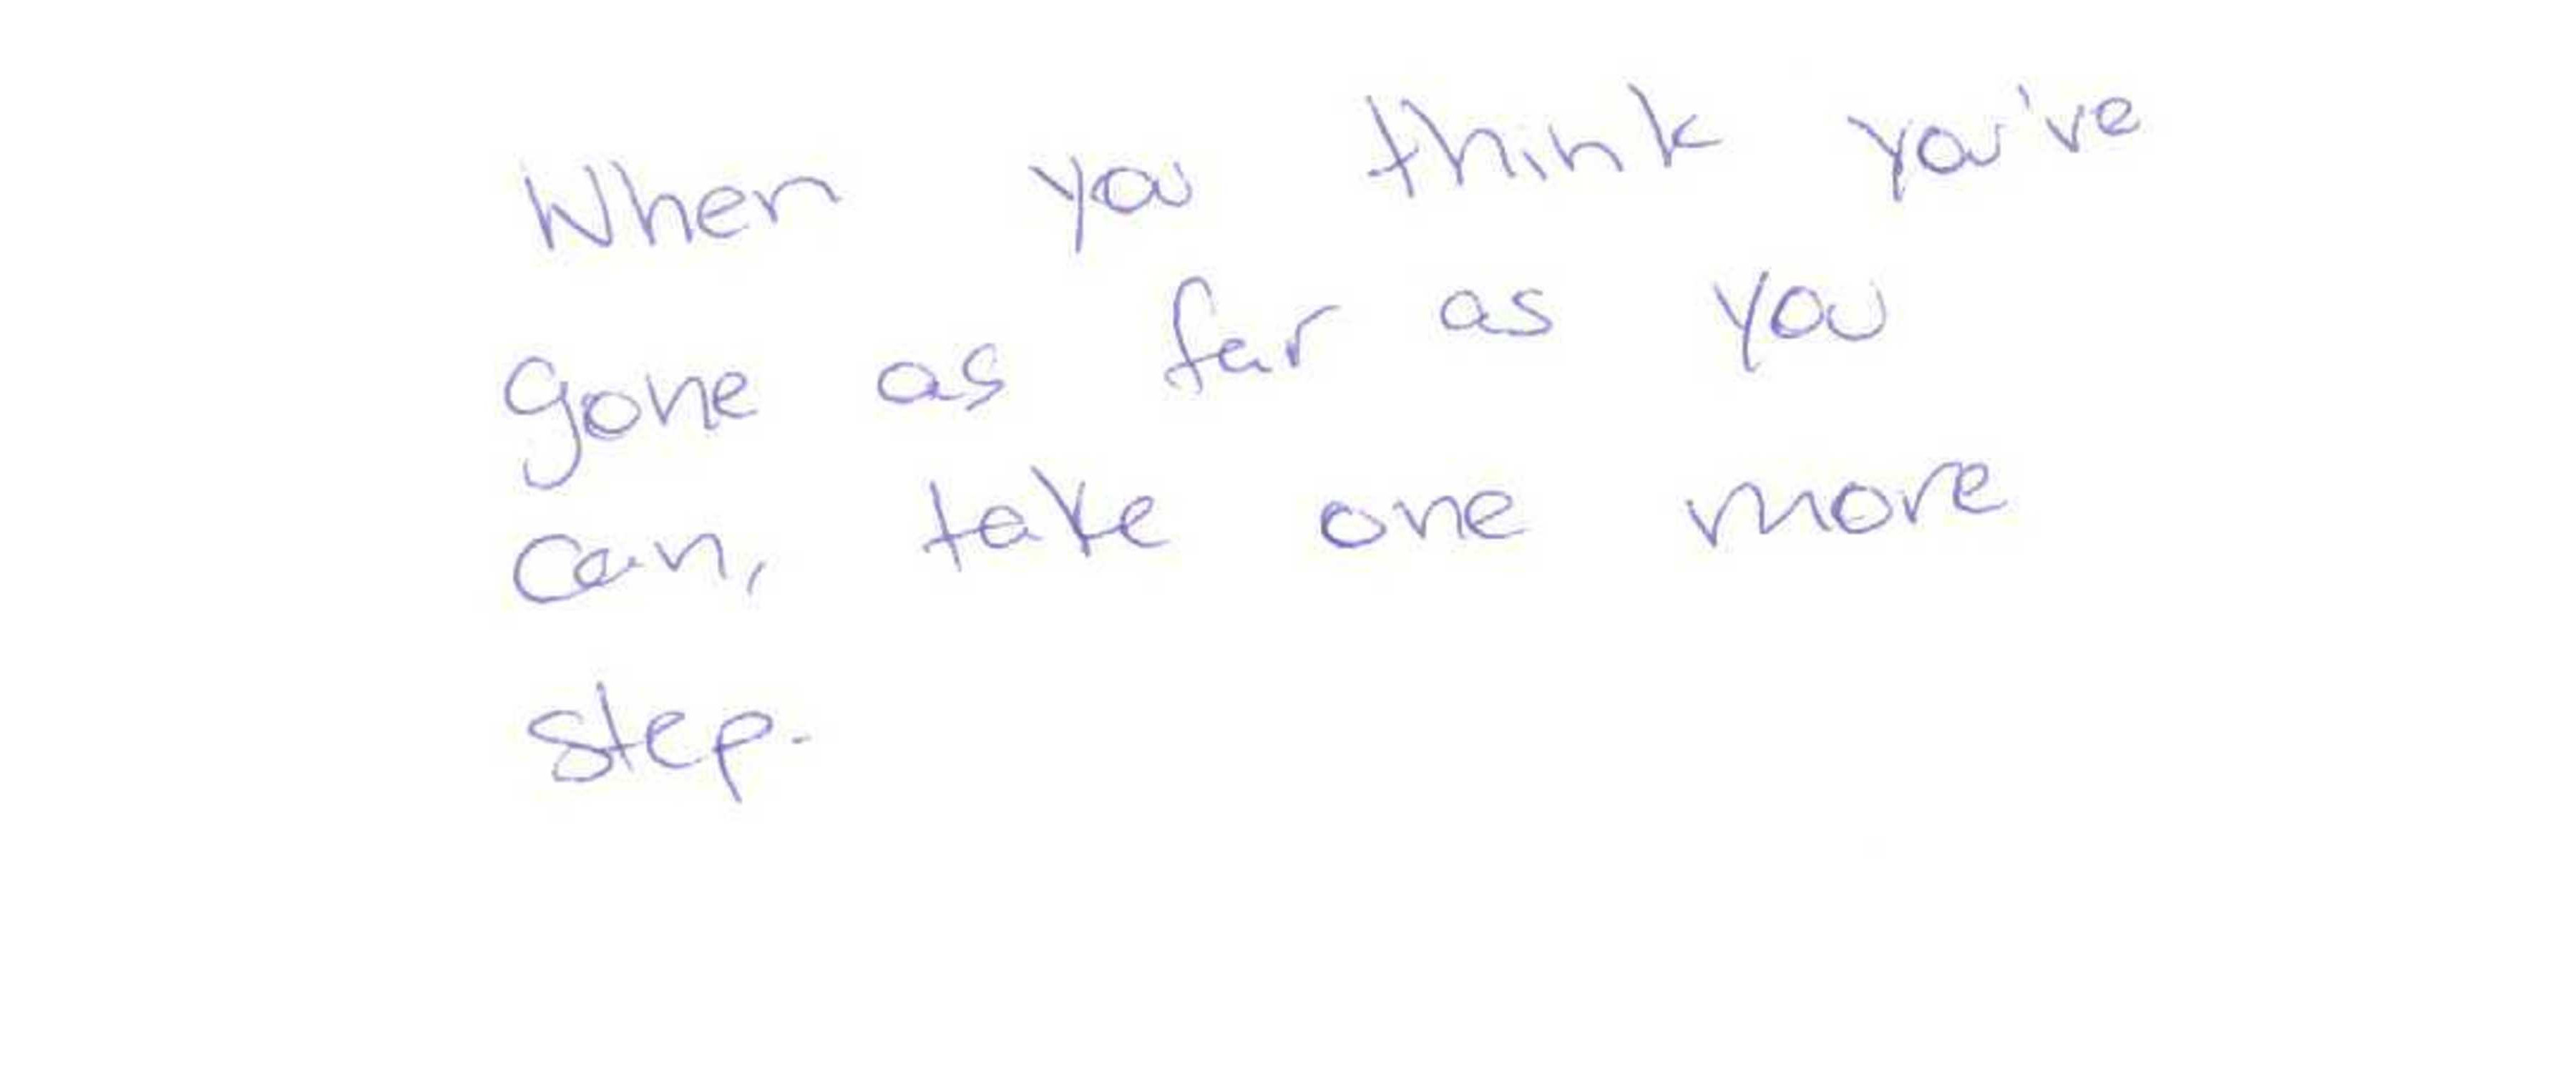 When you think you've
gone as far as you
can, take one more
step.